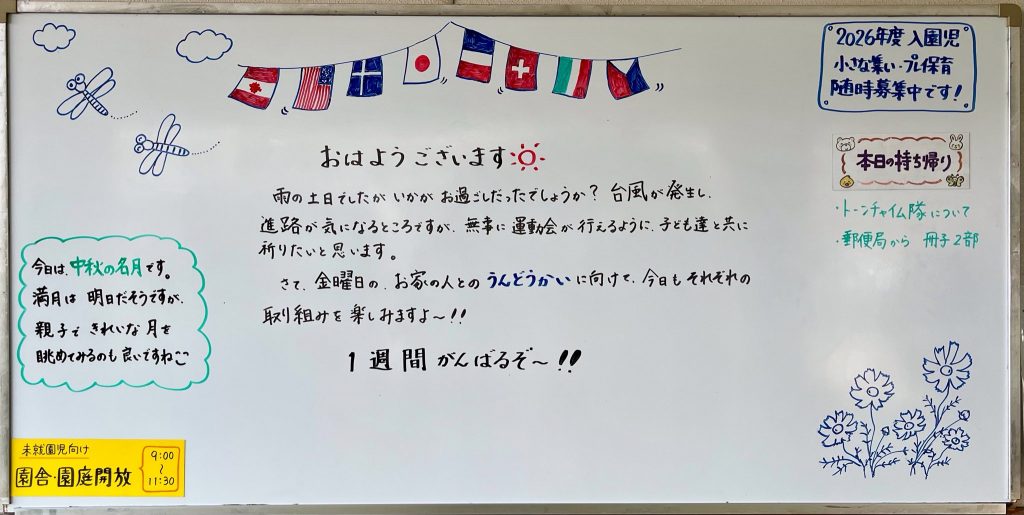 2026年度 入園児
小さな集い・プレ保育
随時募集中です!
本日の持ち帰り
・トーンチャイム隊について
・郵便局から 冊子2部
おはようございます
雨の土日でしたが いかがお過ごしだったでしょうか? 台風が発生し、
進路が気になるところですが、無事に運動会が行えるように、子ども達と共に
祈りたいと思います。
さて、金曜日の、お家の人との うんどうかい に向けて、今日も それぞれの
取り組みを楽しみますよ〜!!
1週間 がんばるぞ〜!!
今日は、中秋の名月です。
満月は 明日だそうですが、
親子で きれいな 月を
眺めてみるのも良いですねこ
未就園児向け
園舎・園庭開放
9:00
〜
11:30